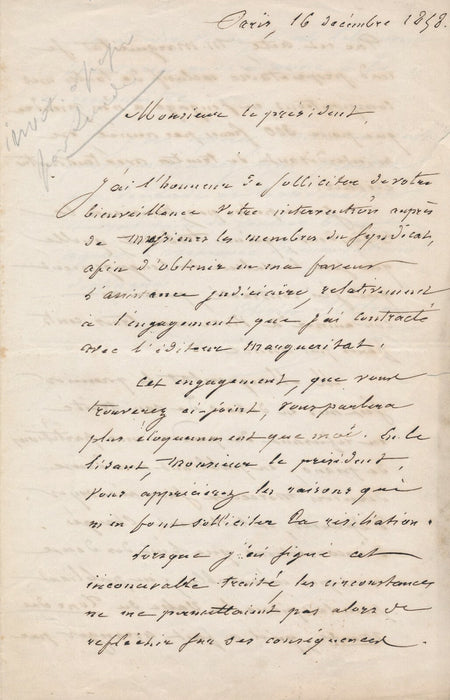 Paris, 16 décembre 1858.
Monsieur le président,
J'ai l'honneur de solliciter de votre
bienveillance votre intervention auprès
de Messieurs les membres du Syndicat,
afin d'obtenir en ma faveur
l'assistance judiciaire, relativement
à l'engagement que j'ai contracté
avec l'éditeur Margueritat.
Cet engagement, que vous
trouverez ci-joint, vous parlera
plus éloquemment que moi. En le
lisant, Monsieur le président,
vous apprécierez les raisons qui
m'en font solliciter la résiliation.
Lorsque j'ai signé cet
inconcevable traité les circonstances
ne me permettaient pas alors de
refléchir sur ses conséquences.